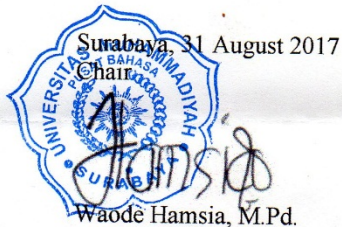 Surabaya, 31 August 2017
Chair
UNIVERSITAS MUHAMMADIYAH
PUSAT BAHASA
SURABAYA
Hamsia
Waode Hamsia, M.Pd.